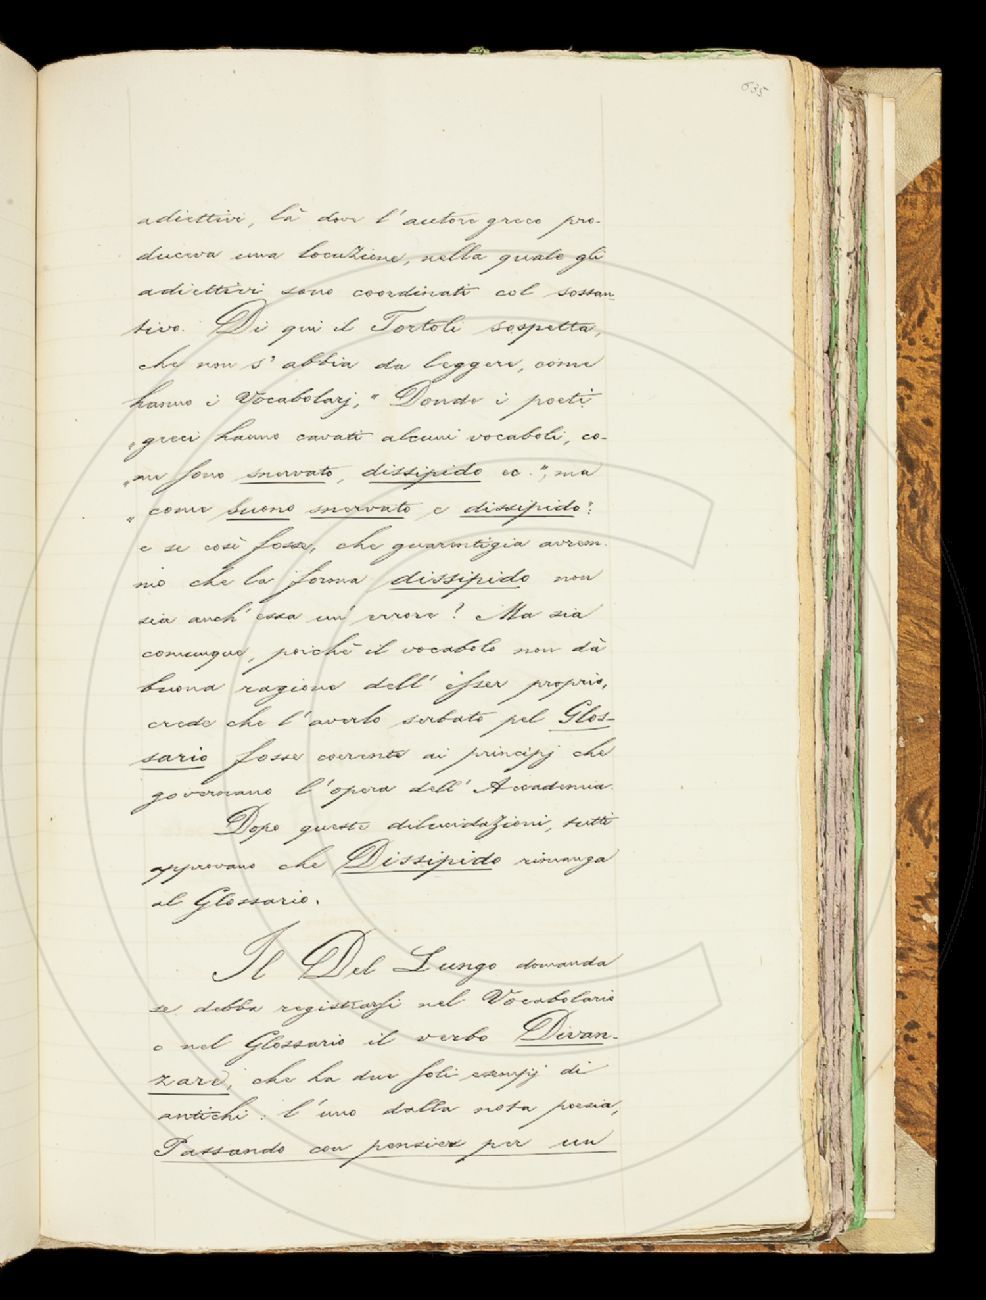 635
adiettivi, là dove l'autore greco pro-
duceva una locuzione, nella quale gli
adiettivi sono coordinati col sostan
tivo. Di qui il Tortoli sospetta,
che non s'abbia da leggere, come
hanno i Vocabolarj, "Donde i poeti
"greci hanno cavati alcuni vocaboli, co-
"me sono snervato, dissipido ec.", ma
"come suono snervato e dissipido:
e se così fosse, che guarentigia avrem-
mo che la forma dissipido non
sia anch'essa un errore? Ma sia
comunque, poichè il vocabolo non dà
buona ragione dell'esser proprio,
crede che l'averlo serbato pel Glos-
sario fosse coerente ai principj che
governano l'opera dell'Accademia.
Dopo queste dilucidazioni, tutti
approvano che Dissipido rimanga
al Glossario.
Il Del Lungo domanda
se debba registrarsi nel Vocabolario
o nel Glossario il verbo Divan-
zare, che ha due soli esempj di
antichi: l'uno dalla nota poesia,
Passando con pensier per un